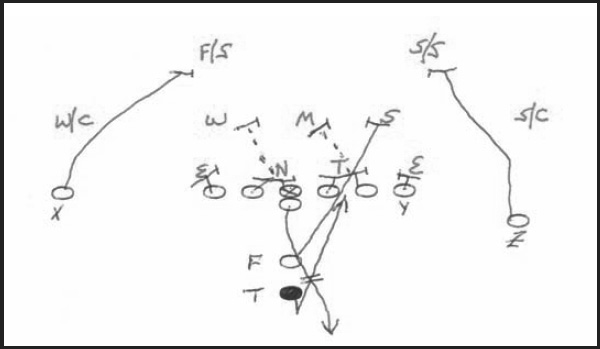 F/S
S/S
W/C
W
M
S
S/C
E
N
T
E
X
Y
Z
F
T